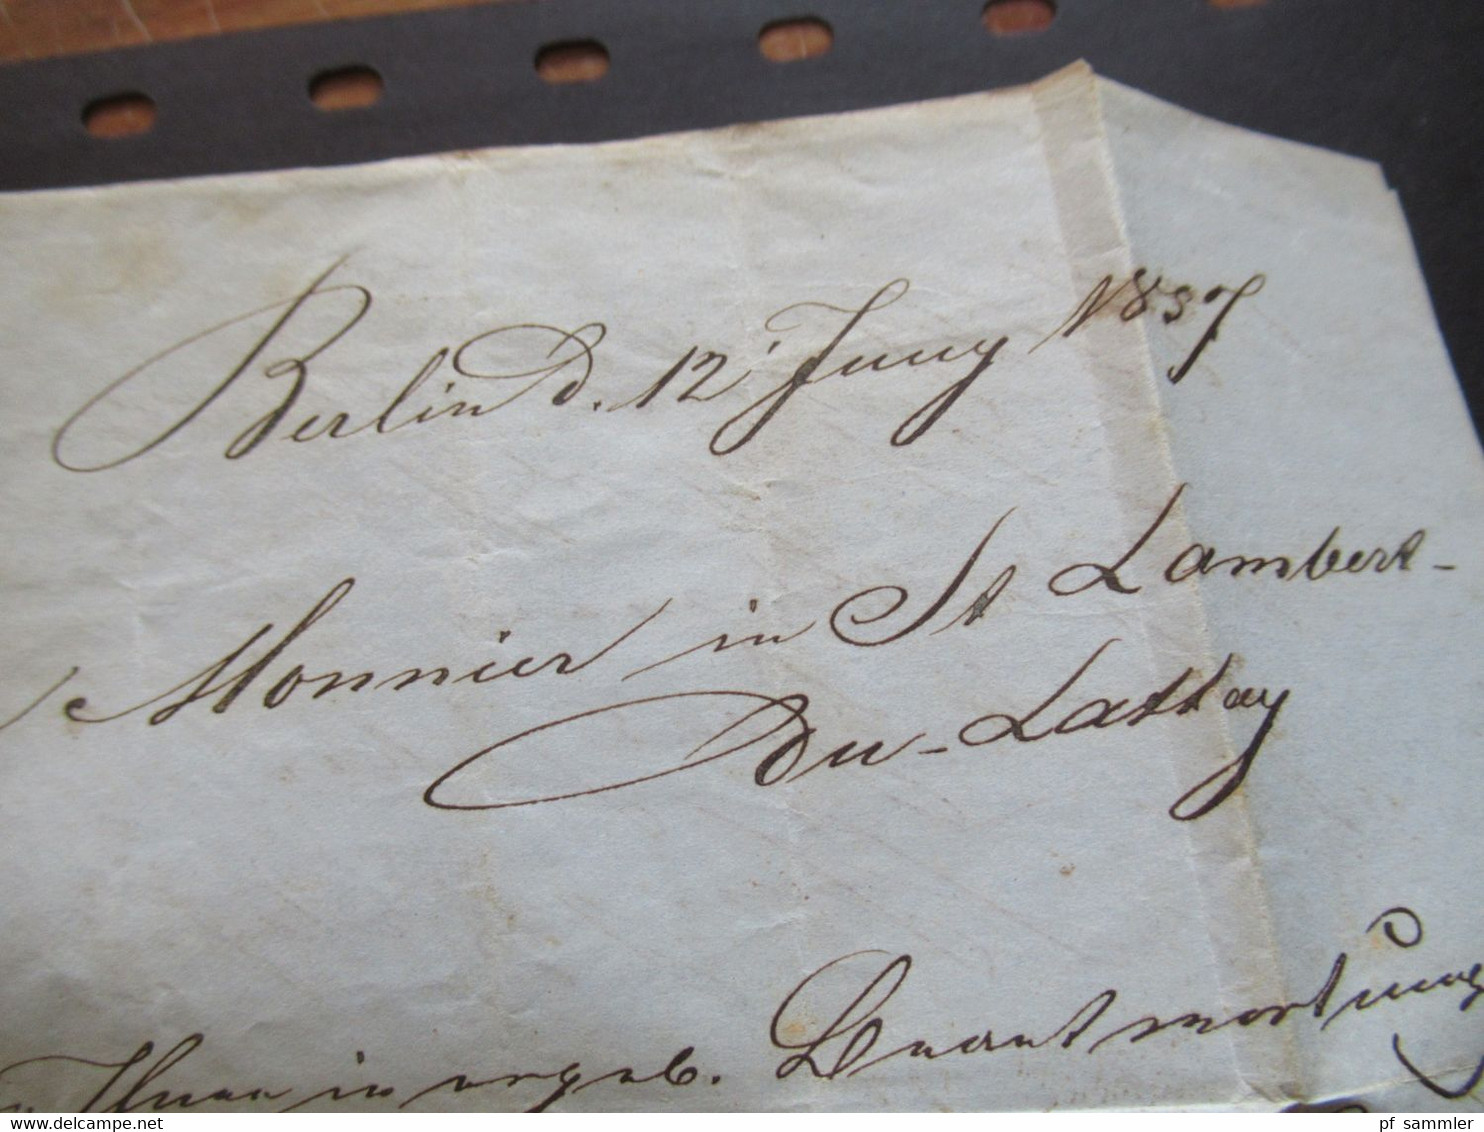 Berlin d. 12 Juny 1857
Monnier in St Lambert-
Du-Lattay
Ihnen in ergeb. Beantwortung
pf_sammler